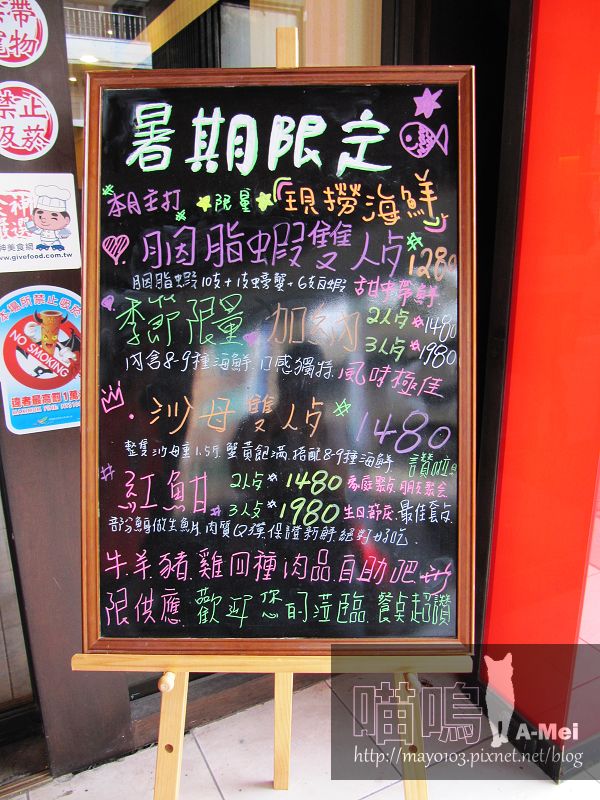 禁帶
寵物
禁止
吸菸
www.givefood.com.tw
本場所禁止吸菸
NO SMOKING
違者最高罰1萬
暑期限定
本月主打 限量 現撈海鮮
胭脂蝦雙人点 1280
胭脂蝦10支+1支螃蟹+6支白蝦 甜中帶鮮
季節限量 加納 2人点 1480
3人点 1980
內含8-9種海鮮.口感獨特.風味極佳
沙母雙人点 1480
整隻沙母重1.5斤.蟹黃飽滿.搭配8-9種海鮮
紅魽 2人点 1480 家庭聚点.朋友聚会
3人点 1980 生日節慶.最佳套点
部分鰢做生魚片.肉質Q彈.保證新鮮.絕對好吃.
牛.羊.豬.雞四種肉品.自助吧無
限供應.歡迎您的蒞臨.餐点超讚
喵嗚 A-Mei
http://mayo103.pixnet.net/blog